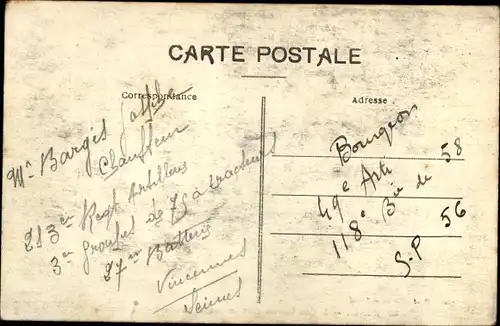 CARTE POSTALE
Correspondance
Mr Bargis
Chauffeur
213eme Regt Artillerie
3eme groupe de 75 à tracteurs
27me Batterie
Vincennes
Seine
Adresse
Bourgeois
49e Arti 58
118e Bie de 56
S.P